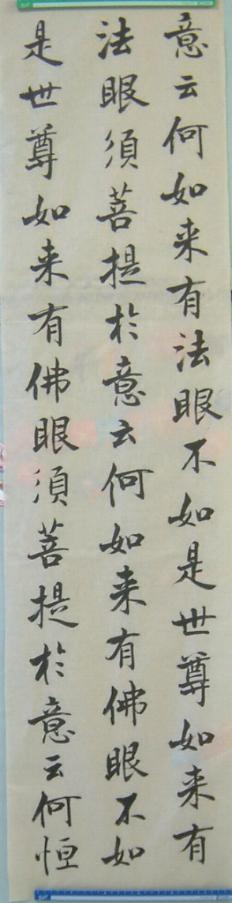 意云何如来有法眼不如是世尊如来有
法眼須菩提於意云何如来有佛眼不如
是世尊如来有佛眼須菩提於意云何恒